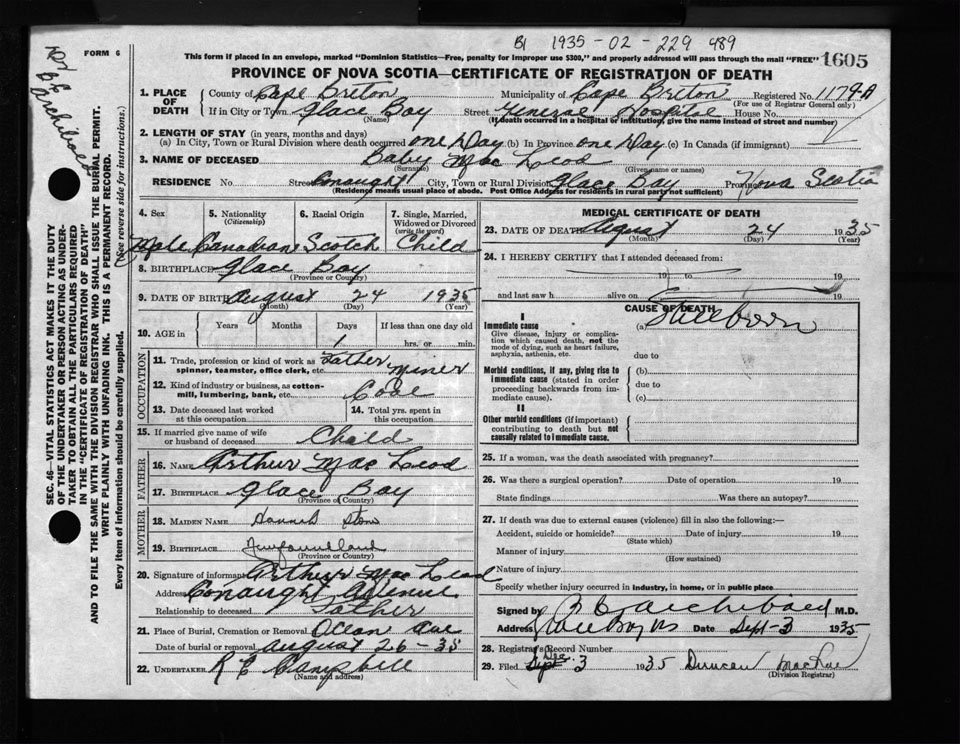 B1 1935 - 02 - 229 489
FORM 6
This form if placed in an envelope, marked "Dominion Statistics—Free, penalty for improper use $300," and properly addressed will pass through the mail "FREE"
1605
PROVINCE OF NOVA SCOTIA—CERTIFICATE OF REGISTRATION OF DEATH
1. PLACE OF DEATH
County of Cape Breton Municipality of Cape Breton Registered No. 1179-A
(For use of Registrar General only)
If in City or Town Glace Bay Street General Hospital House No.
(Name) (If death occurred in a hospital or institution, give the name instead of street and number)
2. LENGTH OF STAY (in years, months and days)
(a) In City, Town or Rural Division where death occurred one Day (b) In Province one Day (c) In Canada (if immigrant)
3. NAME OF DECEASED Baby Mac Leod
(Surname) (Given name or names)
RESIDENCE No. Street Conaught City, Town or Rural Division Glace Bay Province Nova Scotia
(Residence means usual place of abode. Post Office Address for residents in rural parts not sufficient)
4. Sex 5. Nationality 6. Racial Origin 7. Single, Married, Widowed or Divorced
(Citizenship) (write the word)
Male Canadian Scotch Child
8. BIRTHPLACE Glace Bay
(Province or Country)
9. DATE OF BIRTH August 24 1935
(Month) (Day) (Year)
10. AGE in Years Months Days If less than one day old
1 hrs. or min.
OCCUPATION
11. Trade, profession or kind of work as spinner, teamster, office clerk, etc. Father Miner
12. Kind of industry or business, as cotton-mill, lumbering, bank, etc. Coal
13. Date deceased last worked at this occupation
14. Total yrs. spent in this occupation
15. If married give name of wife or husband of deceased Child
FATHER
16. NAME Arthur Mac Leod
17. BIRTHPLACE Glace Bay
(Province or Country)
MOTHER
18. MAIDEN NAME Hannah Stow
19. BIRTHPLACE Newfoundland
(Province or Country)
20. Signature of informant Arthur Mac Leod
Address Conaught Avenue
Relationship to deceased Father
21. Place of Burial, Cremation or Removal Ocean Ave
Date of burial or removal August 26-35
22. UNDERTAKER R E Campbell
(Name and address)
MEDICAL CERTIFICATE OF DEATH
23. DATE OF DEATH August 24 1935
(Month) (Day) (Year)
24. I HEREBY CERTIFY that I attended deceased from:
19 to 19
and last saw h alive on 19
CAUSE OF DEATH
I
Immediate cause (a) Stillborn
Give disease, injury or complication which caused death, not the mode of dying, such as heart failure, asphyxia, asthenia, etc.
due to
Morbid conditions, if any, giving rise to immediate cause (stated in order proceeding backwards from immediate cause).
(b)
due to
(c)
II
Other morbid conditions (if important) contributing to death but not causally related to immediate cause.
25. If a woman, was the death associated with pregnancy?
26. Was there a surgical operation? Date of operation 19
State findings Was there an autopsy?
27. If death was due to external causes (violence) fill in also the following:—
Accident, suicide or homicide? Date of injury 19
(State which)
Manner of injury
(How sustained)
Nature of injury
Specify whether injury occurred in industry, in home, or in public place
Signed by B C Archibald M.D.
Address Glace Bay NS Date Sept-3 1935
28. Registrar's Record Number
29. Filed Sept 3 1935 Duncan MacRae
Dec
(Division Registrar)
SEC. 46—VITAL STATISTICS ACT MAKES IT THE DUTY
OF THE UNDERTAKER OR PERSON ACTING AS UNDER-
TAKER TO OBTAIN ALL THE PARTICULARS REQUIRED
IN THE "CERTIFICATE OF REGISTRATION OF DEATH"
AND TO FILE THE SAME WITH THE DIVISION REGISTRAR WHO SHALL ISSUE THE BURIAL PERMIT.
WRITE PLAINLY WITH UNFADING INK. THIS IS A PERMANENT RECORD.
Every item of information should be carefully supplied. (See reverse side for instructions.)
Archibald